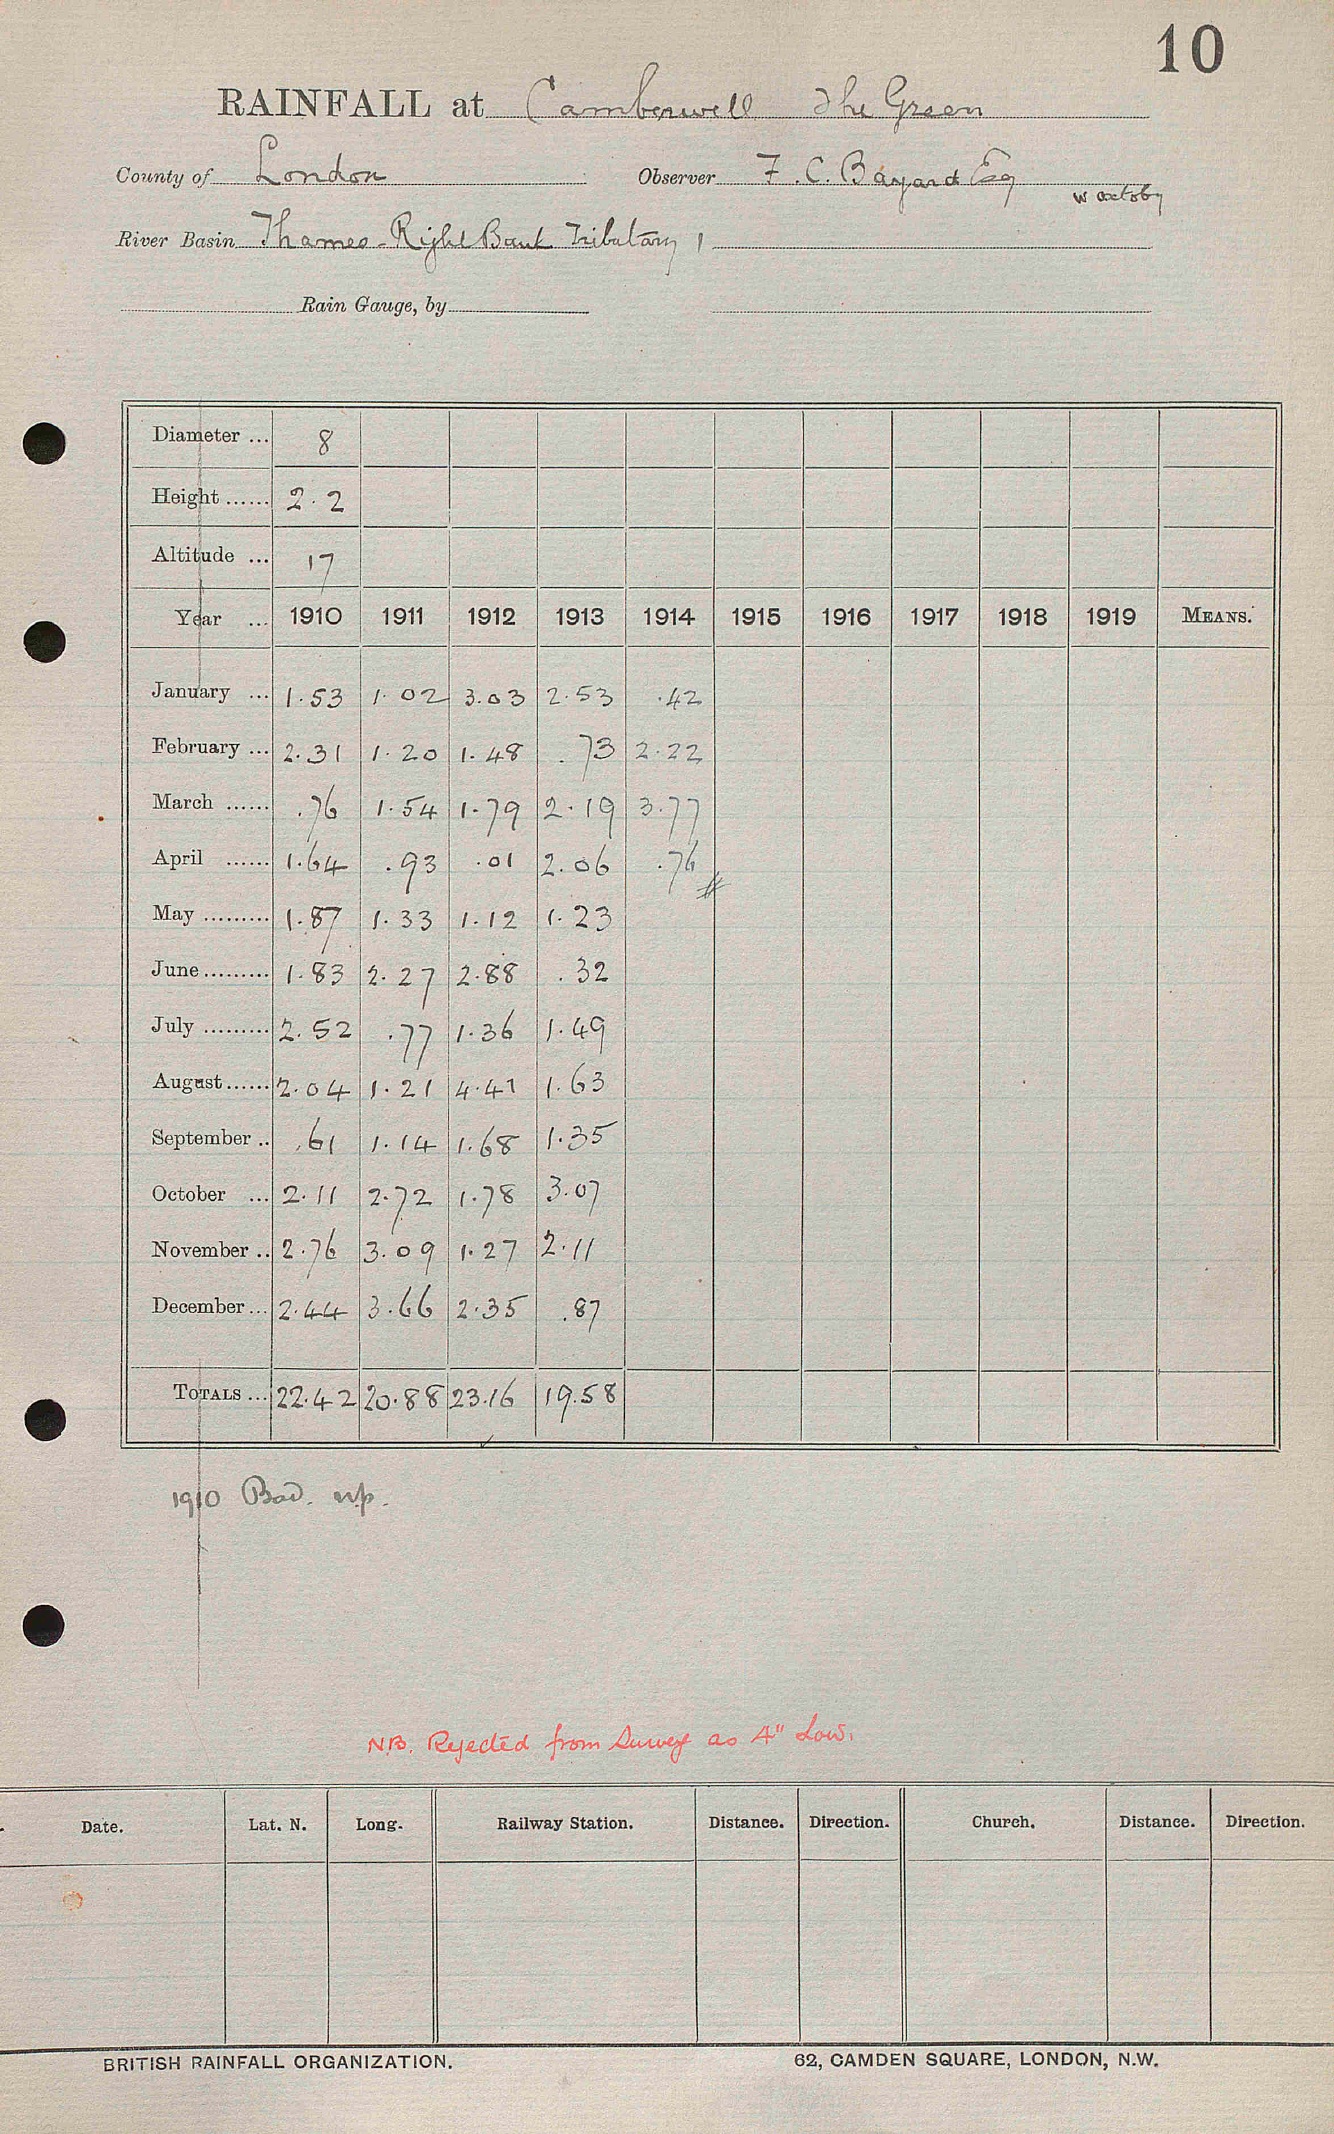 10
RAINFALL at Camberwell The Green
County of London Observer F. C. Bayard Esq
River Basin Thames - Right Bank Tributary 1
Rain Gauge, by
Diameter ... 8
Height ...... 2.2
Altitude ... 17
Year ... 1910 1911 1912 1913 1914 1915 1916 1917 1918 1919 MEANS.
January ... 1.53 1.02 3.03 2.53 .42
February ... 2.31 1.20 1.48 .73 2.22
March ...... .76 1.54 1.79 2.19 3.77
April ...... 1.64 .93 .01 2.06 .76
May ......... 1.87 1.33 1.12 1.23
June ......... 1.83 2.27 2.88 .32
July ......... 2.52 .77 1.36 1.49
August ...... 2.04 1.21 4.41 1.63
September .. .61 1.14 1.68 1.35
October ... 2.11 2.72 1.78 3.07
November .. 2.76 3.09 1.27 2.11
December ... 2.44 3.66 2.35 .87
TOTALS ... 22.42 20.88 23.16 19.58
1910 Bad. n.p.
N.B. Rejected from Survey as 4" Low.
Date. Lat. N. Long. Railway Station. Distance. Direction. Church. Distance. Direction.
BRITISH RAINFALL ORGANIZATION. 62, CAMDEN SQUARE, LONDON, N.W.